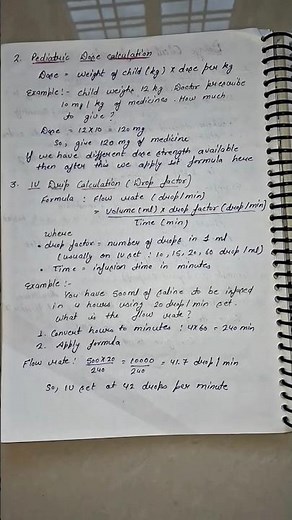 2. Pediatric Dose calculation
Dose = weight of child (kg) x dose per kg
Example:- child weighs 12 kg Doctor prescribe
10 mg / kg of medicines. How much
to give?
Dose = 12x10 = 120 mg
So, give 120 mg of medicine
If we have different dose strength available
then after this we apply 1st formula here
3. IV Drip Calculation (Drop factor)
Formula : Flow rate (drop/min)
= Volume (ml) x drop factor (drop/min)
Time (min)
where
• drop factor = number of drops in 1 ml
(usually on IV set : 10, 15, 20, 60 drop/ml)
• Time = infusion time in minutes
Example :-
You have 500ml of saline to be infused
in 4 hours using 20 drop/min set.
What is the flow rate?
1. Convert hours to minutes : 4x60 = 240 min
2. Apply formula
Flow rate : 500x20/240 = 10000/240 = 41.7 drop/min
So, IV set at 42 drops per minute